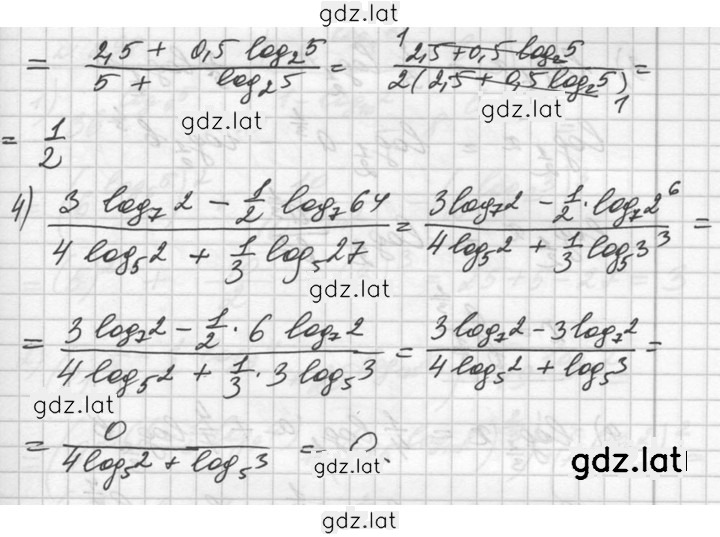 gdz.lat
= (2,5 + 0,5 log₂5)/(5 + log₂5) = (2,5 + 0,5 log₂5)/(2(2,5 + 0,5 log₂5)) =
1
1
gdz.lat gdz.lat
= 1/2
4) (3 log₇2 − 1/2 log₇64)/(4 log₅2 + 1/3 log₅27) = (3 log₇2 − 1/2 · log₇2⁶)/(4 log₅2 + 1/3 log₅3³) =
gdz.lat
= (3 log₇2 − 1/2 · 6 log₇2)/(4 log₅2 + 1/3 · 3 log₅3) = (3 log₇2 − 3 log₇2)/(4 log₅2 + log₅3) =
gdz.lat
= 0/(4 log₅2 + log₅3) = 0.
gdz.lat gdz.lat
gdz.lat